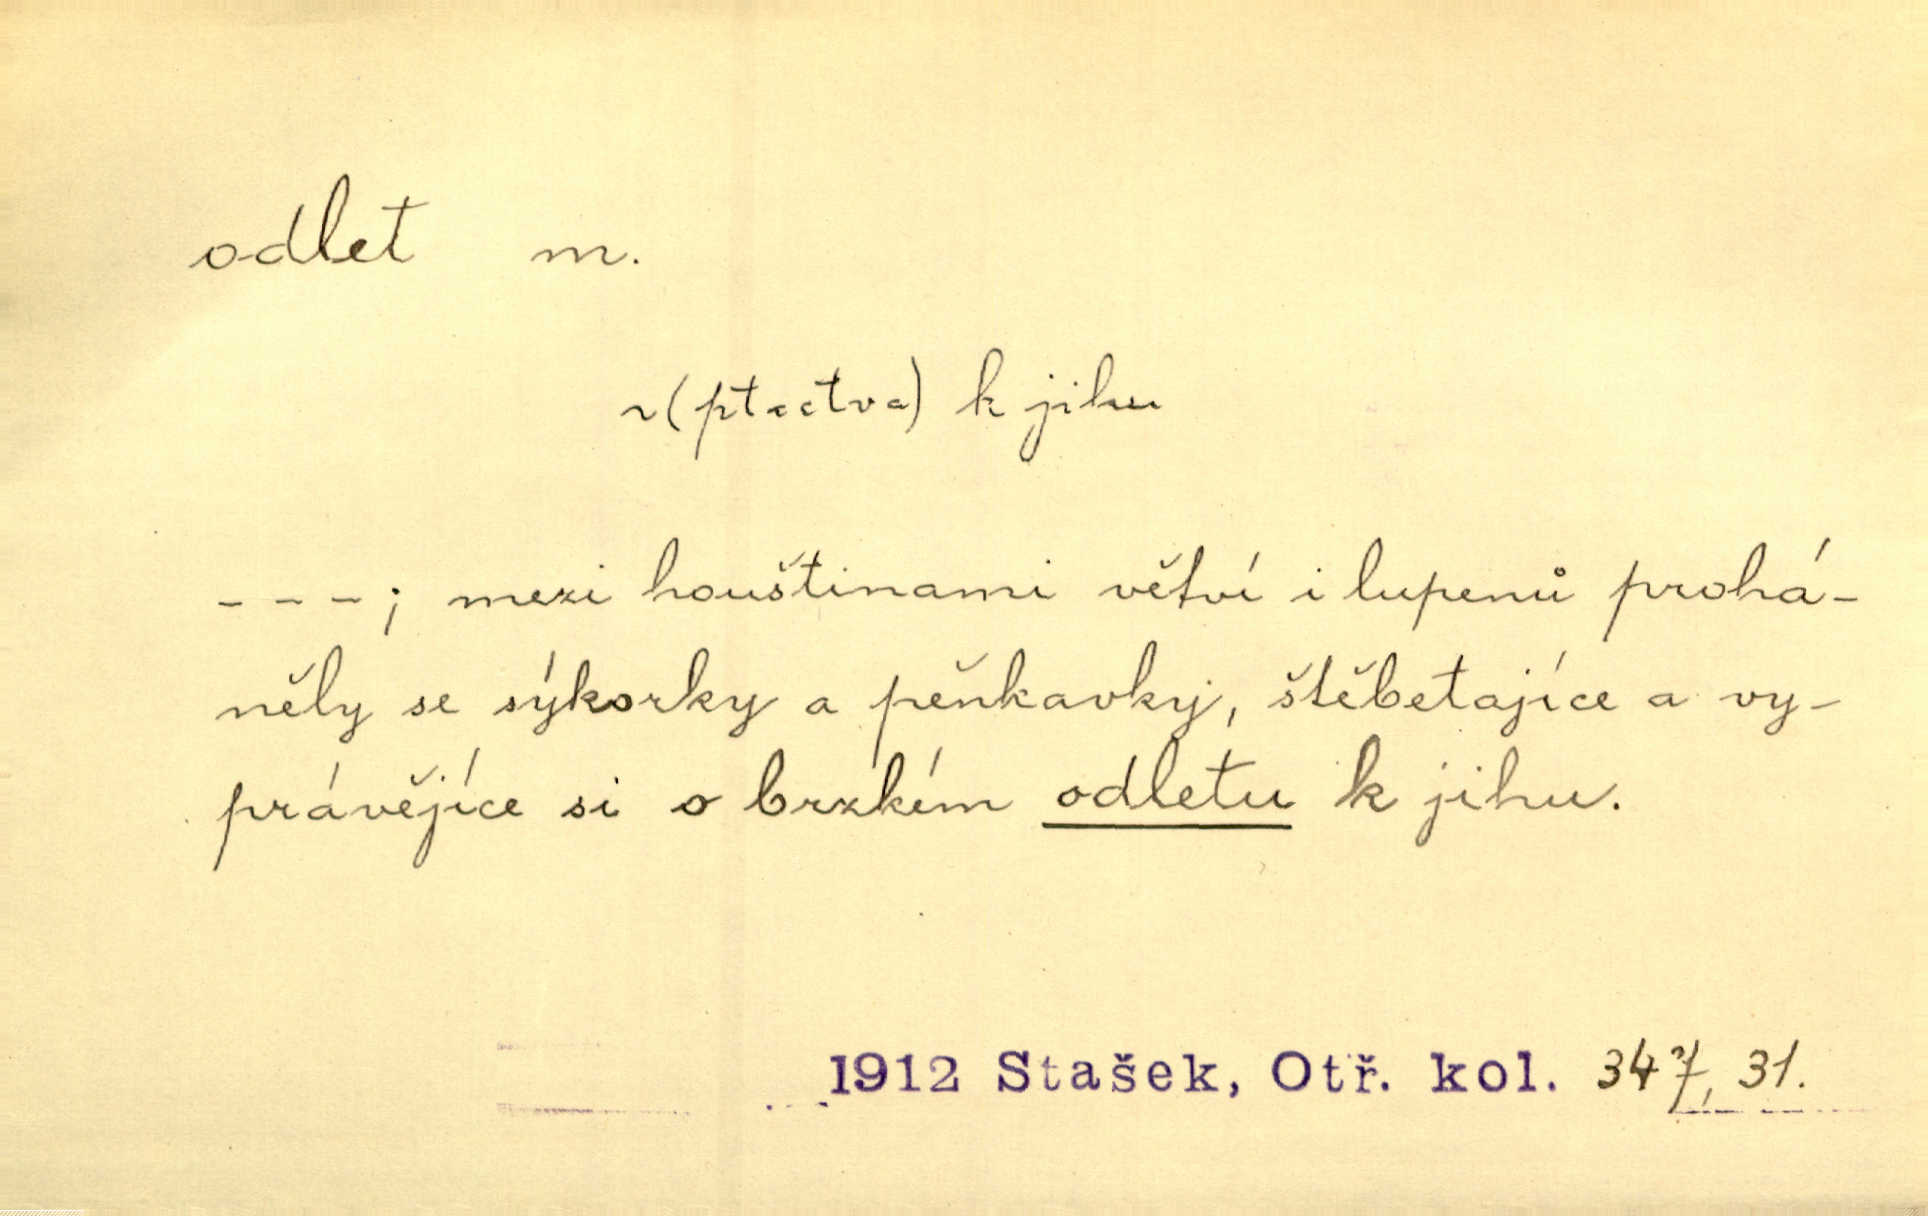 odlet m.
~(ptactva) k jihu
- - -; mezi houštinami větví i lupenů prohá-
něly se sýkorky a pěňkavky, štěbetajíce a vy-
právějíce si o brzkém odletu k jihu.
1912 Stašek, Otř. kol. 347, 31.